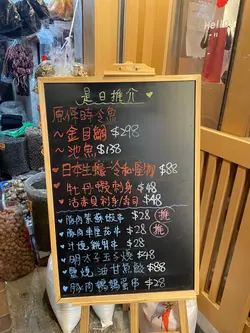 Hello
是日推介♥
原條時令魚
~金目鯛 $298
~池魚 $138
♥日本生蠔 $88
♥牡丹蝦刺身 $48
♥活赤貝刺身/壽司 $48
豚肉紫蘇飯串 $28 推
豚肉車厘茄串 $28 推
汁燒雞腎串 $28
明太子玉子燒 $48
鹽燒油甘魚鮫 $88
豚肉鵪鶉蛋串 $28